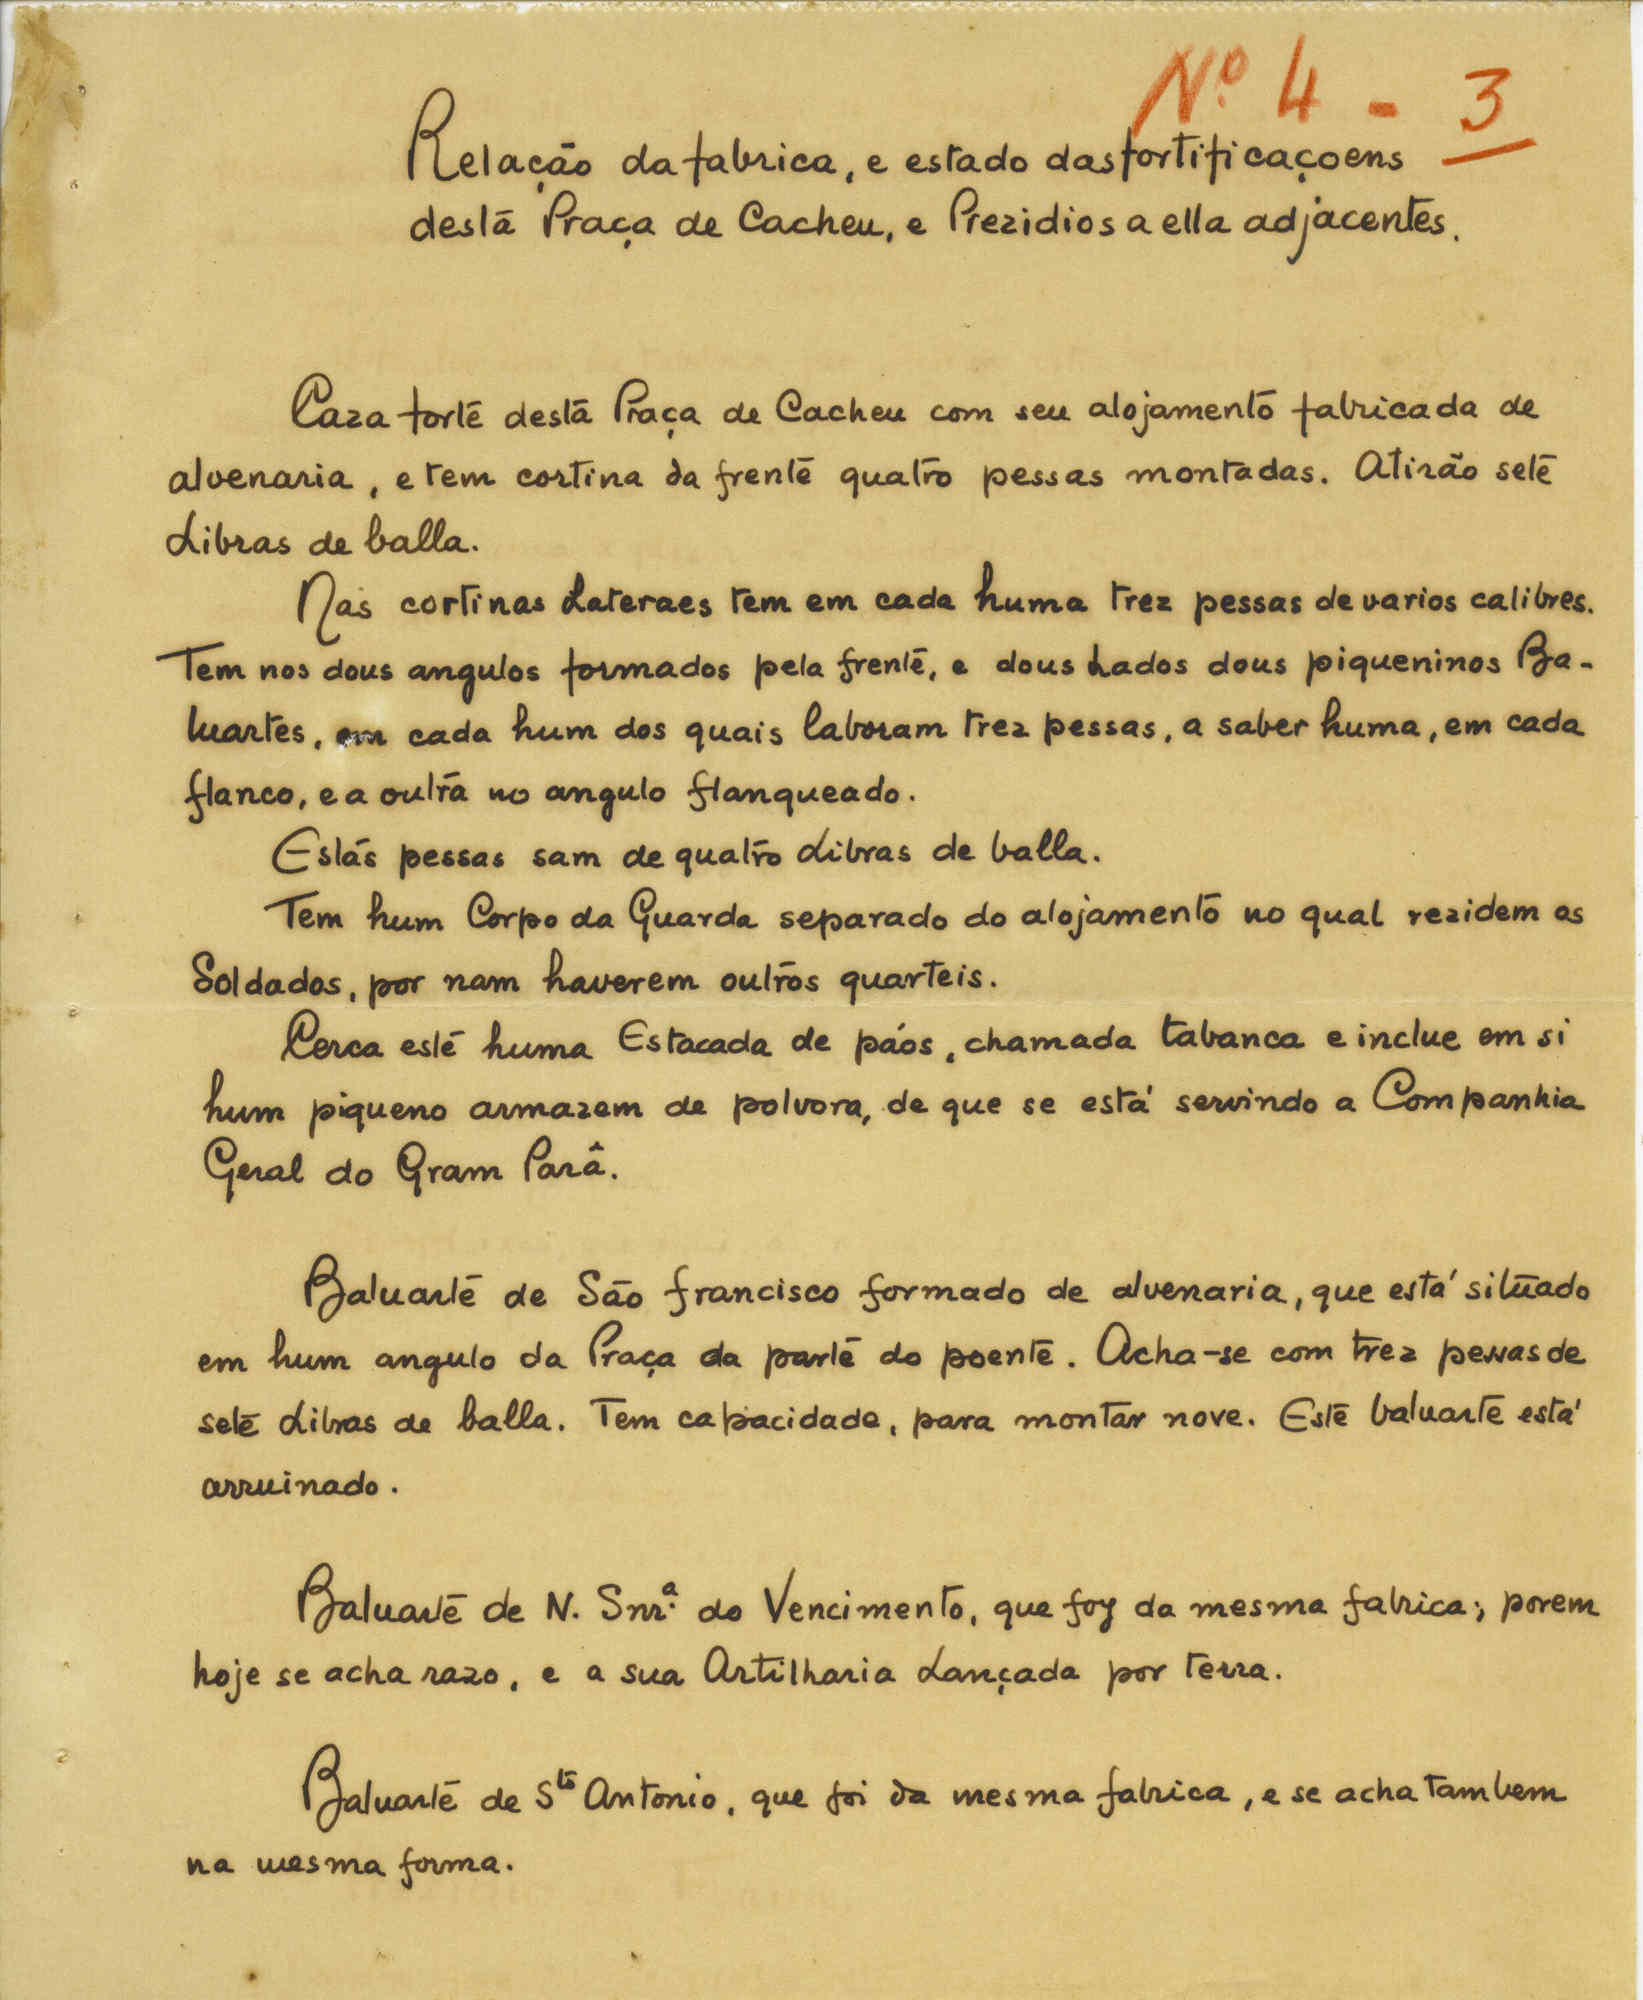 Nº 4 - 3
Relação da fabrica, e estado das fortificaçoens
desta Praça de Cacheu, e Prezidios a ella adjacentes.
Caza forte desta Praça de Cacheu com seu alojamento fabricada de
alvenaria, e tem cortina da frente quatro pessas montadas. Atirão sete
Libras de balla.
Nas cortinas Lateraes tem em cada huma trez pessas de varios calibres.
Tem nos dous angulos formados pela frente, e dous Lados dous piqueninos Ba-
luartes, em cada hum dos quais laboram trez pessas, a saber huma, em cada
flanco, e a outra no angulo flanqueado.
Estas pessas sam de quatro Libras de balla.
Tem hum Corpo da Guarda separado do alojamento no qual rezidem os
Soldados, por nam haverem outros quarteis.
Cerca este huma Estacada de páos, chamada tabanca e inclue em si
hum piqueno armazem de polvora, de que se está servindo a Companhia
Geral do Gram Parâ.
Baluarte de São francisco formado de alvenaria, que está situado
em hum angulo da Praça da parte do poente. Acha-se com trez pessas de
sete Libras de balla. Tem capacidade, para montar nove. Este baluarte está
arruinado.
Baluarte de N. Snr.ª do Vencimento, que foy da mesma fabrica; porem
hoje se acha razo, e a sua Artilharia Lançada por terra.
Baluarte de Sto Antonio, que foi da mesma fabrica, e se acha tambem
na mesma forma.